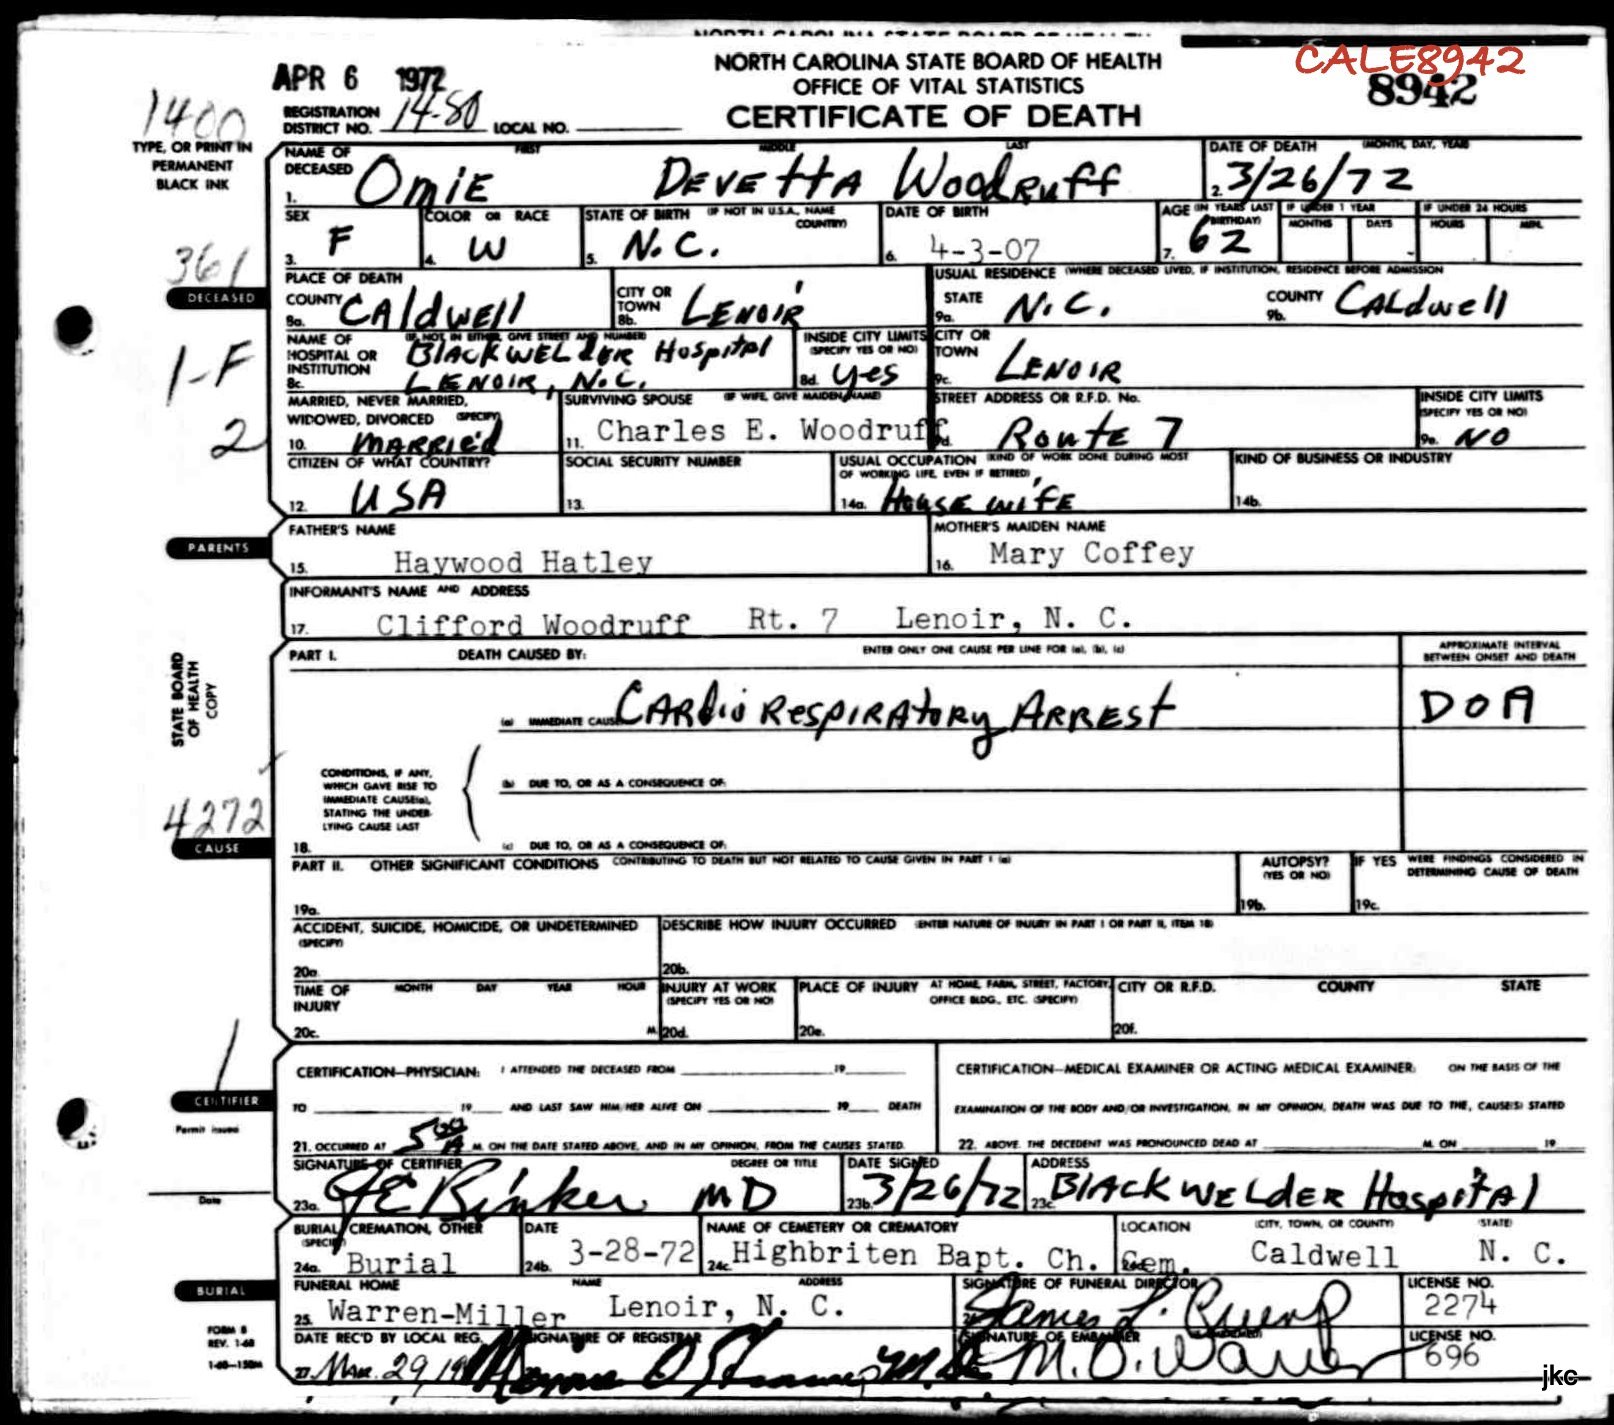 NORTH CAROLINA STATE BOARD OF HEALTH
APR 6 1972
NORTH CAROLINA STATE BOARD OF HEALTH
OFFICE OF VITAL STATISTICS
CERTIFICATE OF DEATH
CALE8942
8942
1400
REGISTRATION DISTRICT NO. 14-80 LOCAL NO.
TYPE, OR PRINT IN
PERMANENT
BLACK INK
NAME OF DECEASED FIRST MIDDLE LAST DATE OF DEATH (MONTH, DAY, YEAR)
1. OmiE DEVEttA WoodRuff 2. 3/26/72
SEX COLOR OR RACE STATE OF BIRTH (IF NOT IN U.S.A., NAME COUNTRY) DATE OF BIRTH AGE (IN YEARS LAST BIRTHDAY) IF UNDER 1 YEAR MONTHS DAYS IF UNDER 24 HOURS HOURS MIN.
3. F 4. W 5. N.C. 6. 4-3-07 7. 62
361
DECEASED
PLACE OF DEATH USUAL RESIDENCE (WHERE DECEASED LIVED, IF INSTITUTION, RESIDENCE BEFORE ADMISSION
COUNTY 8a. CAldwEll CITY OR TOWN 8b. LENOIR STATE 9a. N.C. COUNTY 9b. CALdwell
NAME OF HOSPITAL OR INSTITUTION (IF NOT IN EITHER, GIVE STREET AND NUMBER) INSIDE CITY LIMITS (SPECIFY YES OR NO) CITY OR TOWN
8c. BlACKWELdER HospitAl LENOIR, N.C. 8d. yes 9c. LENOIR
1-F
2
MARRIED, NEVER MARRIED, WIDOWED, DIVORCED (SPECIFY) SURVIVING SPOUSE (IF WIFE, GIVE MAIDEN NAME) STREET ADDRESS OR R.F.D. No. INSIDE CITY LIMITS (SPECIFY YES OR NO)
10. MARRiEd 11. Charles E. Woodruff 9d. RoutE 7 9e. NO
CITIZEN OF WHAT COUNTRY? SOCIAL SECURITY NUMBER USUAL OCCUPATION (KIND OF WORK DONE DURING MOST OF WORKING LIFE, EVEN IF RETIRED) KIND OF BUSINESS OR INDUSTRY
12. USA 13. 14a. HousE wifE 14b.
PARENTS
FATHER'S NAME MOTHER'S MAIDEN NAME
15. Haywood Hatley 16. Mary Coffey
INFORMANT'S NAME AND ADDRESS
17. Clifford Woodruff Rt. 7 Lenoir, N. C.
STATE BOARD OF HEALTH COPY
PART I. DEATH CAUSED BY: ENTER ONLY ONE CAUSE PER LINE FOR (a), (b), (c) APPROXIMATE INTERVAL BETWEEN ONSET AND DEATH
(a) IMMEDIATE CAUSE CARdio RespiRAtoRy ARREst DOA
CONDITIONS, IF ANY, WHICH GAVE RISE TO IMMEDIATE CAUSE(a), STATING THE UNDERLYING CAUSE LAST
(b) DUE TO, OR AS A CONSEQUENCE OF:
4272
CAUSE
18. (c) DUE TO, OR AS A CONSEQUENCE OF:
PART II. OTHER SIGNIFICANT CONDITIONS CONTRIBUTING TO DEATH BUT NOT RELATED TO CAUSE GIVEN IN PART I (a) AUTOPSY? (YES OR NO) IF YES WERE FINDINGS CONSIDERED IN DETERMINING CAUSE OF DEATH
19a. 19b. 19c.
ACCIDENT, SUICIDE, HOMICIDE, OR UNDETERMINED (SPECIFY) DESCRIBE HOW INJURY OCCURRED (ENTER NATURE OF INJURY IN PART I OR PART II, ITEM 18)
20a. 20b.
TIME OF INJURY MONTH DAY YEAR HOUR INJURY AT WORK (SPECIFY YES OR NO) PLACE OF INJURY AT HOME, FARM, STREET, FACTORY, OFFICE BLDG., ETC. (SPECIFY) CITY OR R.F.D. COUNTY STATE
20c. M. 20d. 20e. 20f.
1
CERTIFIER
Permit issued
Date
CERTIFICATION—PHYSICIAN: I ATTENDED THE DECEASED FROM 19
TO 19 AND LAST SAW HIM/HER ALIVE ON 19 DEATH
21. OCCURRED AT 5 00 A M. ON THE DATE STATED ABOVE, AND IN MY OPINION, FROM THE CAUSES STATED.
CERTIFICATION—MEDICAL EXAMINER OR ACTING MEDICAL EXAMINER: ON THE BASIS OF THE
EXAMINATION OF THE BODY AND/OR INVESTIGATION, IN MY OPINION, DEATH WAS DUE TO THE, CAUSE(S) STATED
22. ABOVE. THE DECEDENT WAS PRONOUNCED DEAD AT M. ON 19
SIGNATURE OF CERTIFIER DEGREE OR TITLE DATE SIGNED ADDRESS
23a. E Rinker MD 23b. 3/26/72 23c. BlACKWELdER HospitAl
BURIAL, CREMATION, OTHER (SPECIFY) DATE NAME OF CEMETERY OR CREMATORY LOCATION (CITY, TOWN, OR COUNTY) (STATE)
24a. Burial 24b. 3-28-72 24c. Highbriten Bapt. Ch. Cem. Caldwell N. C.
BURIAL
FUNERAL HOME NAME ADDRESS SIGNATURE OF FUNERAL DIRECTOR LICENSE NO.
25. Warren-Miller Lenoir, N. C. James L. 2274
FORM 8
REV. 1-68
1-68—150M
DATE REC'D BY LOCAL REG. SIGNATURE OF REGISTRAR SIGNATURE OF EMBALMER LICENSE NO.
27. Mar. 29, 19 M.D. M. O. 696
jkc